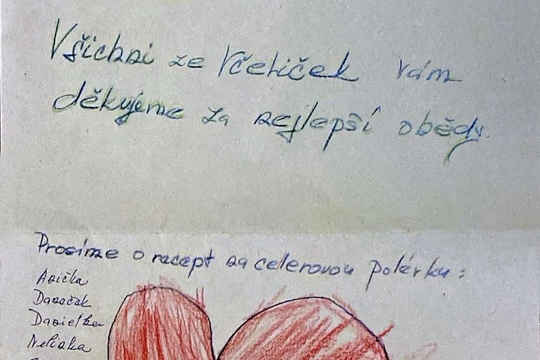 Všichni ze Včeliček vám
děkujeme za nejlepší obědy.
Prosíme o recept na celerovou polévku:
Anička
Danielka